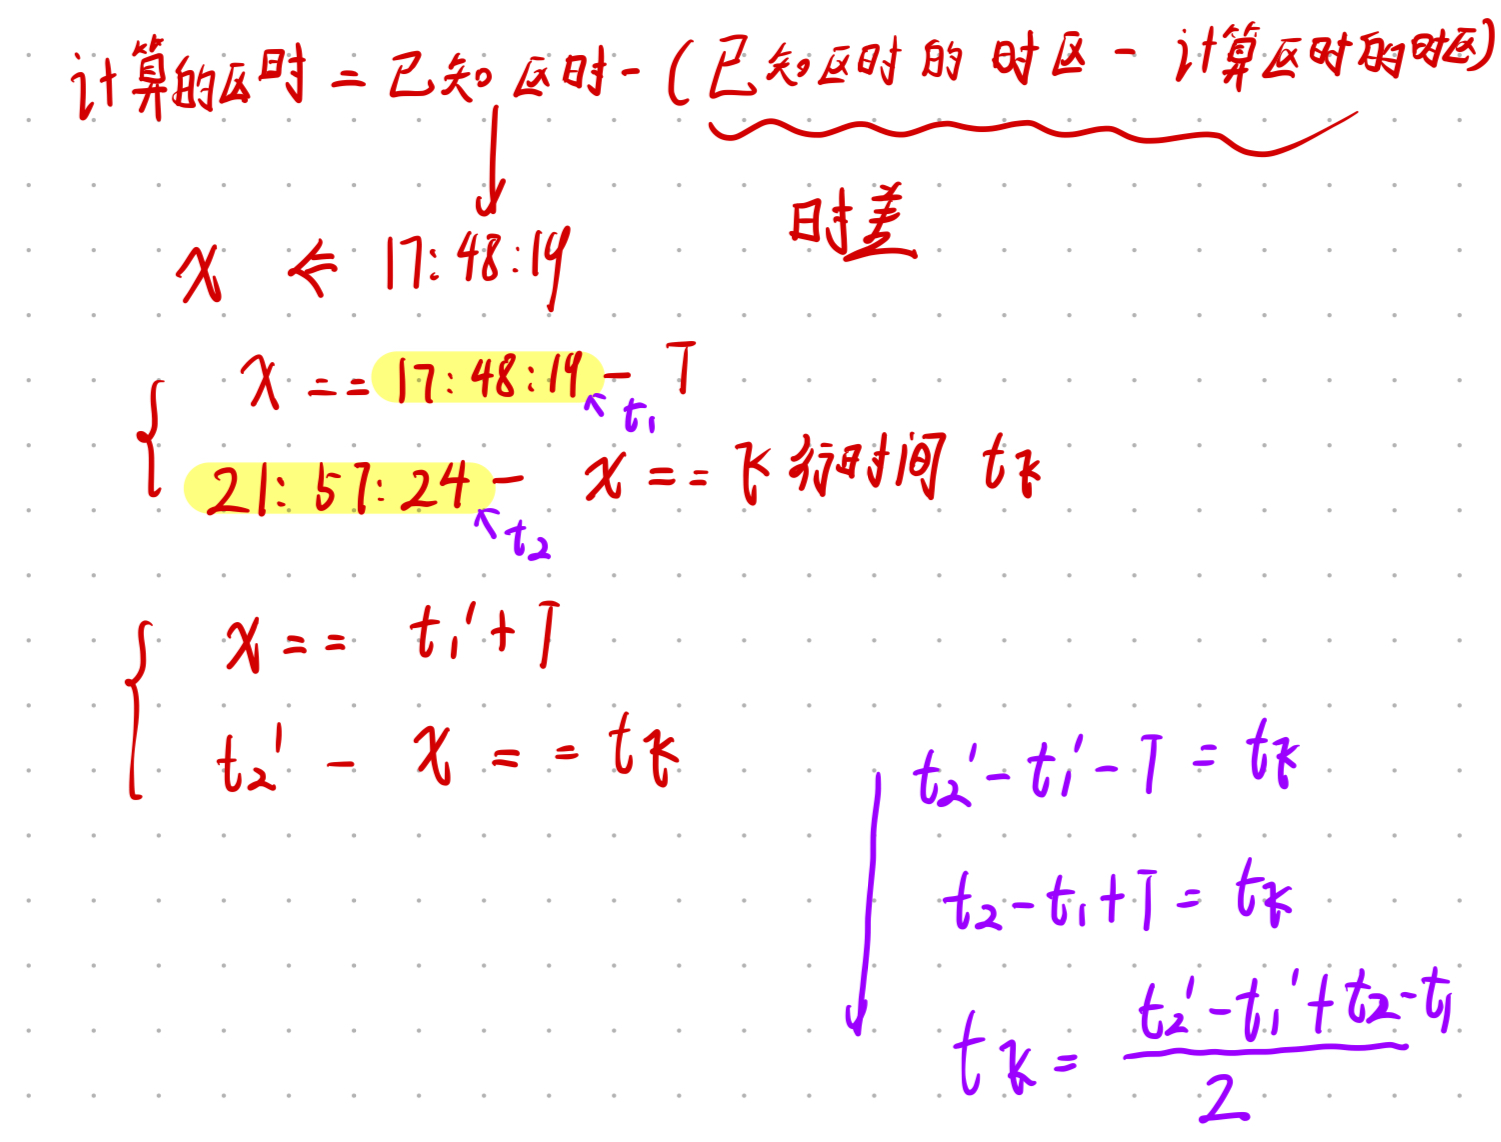 计算的区时 = 已知区时 - (已知区时的时区 - 计算区时的时区)
时差
x ← 17:48:19
x == 17:48:19 - T
t₁
21:57:24 - x == 飞行时间 t飞
t₂
x == t₁' + T
t₂' - x == t飞
t₂' - t₁' - T = t飞
t₂ - t₁ + T = t飞
t飞 = (t₂' - t₁' + t₂ - t₁) / 2